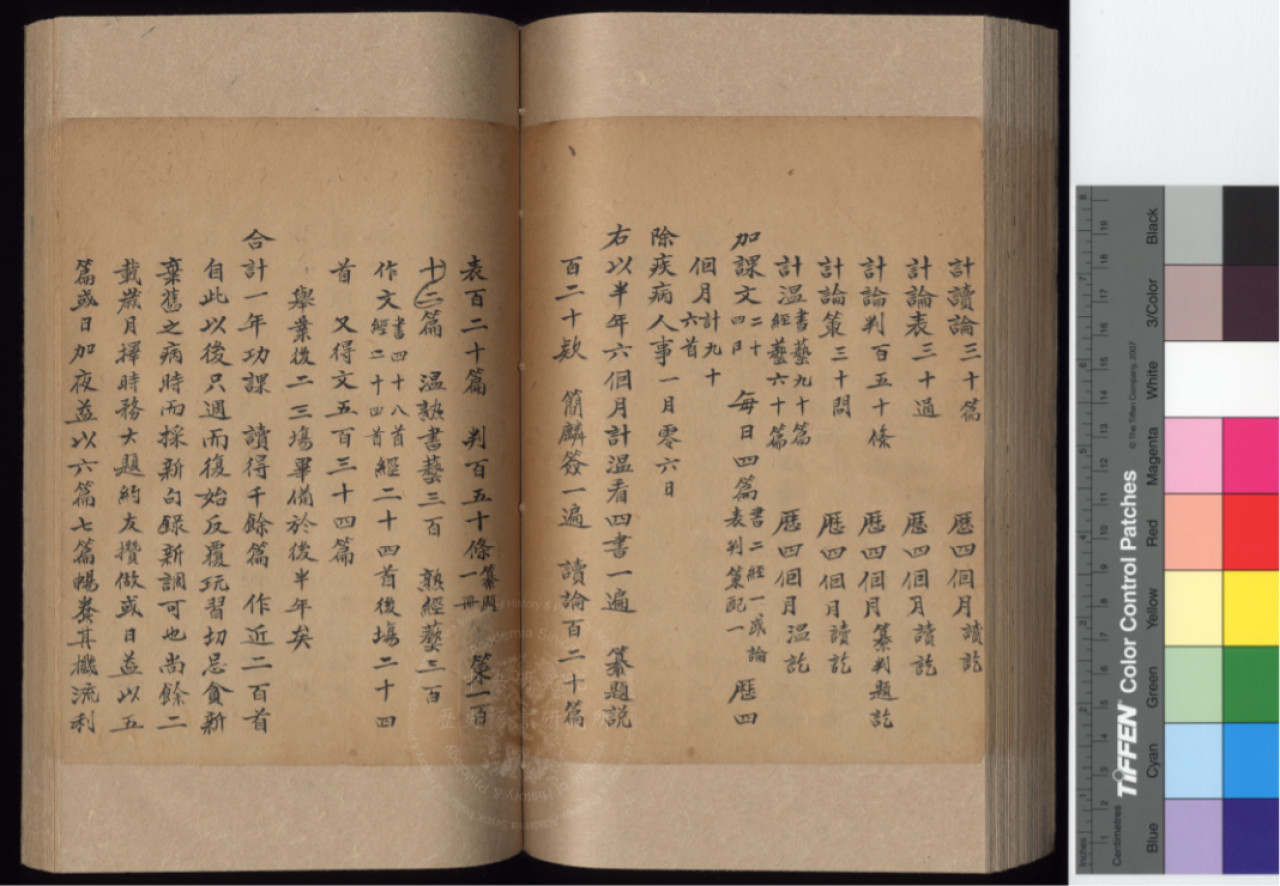 計讀論三十篇　歷四個月讀訖
計論表三十通　歷四個月讀訖
計論判百五十條　歷四個月纂判題訖
計論策三十問　歷四個月讀訖
計溫書藝九十篇經藝六十篇　歷四個月溫訖
加課文二十四日　每日四篇書二經一或論表判策配一　歷四
個月計九十六首
除疾病人事一月零六日
右以半年六個月計溫看四書一遍　纂題說
百二十款　簡麟簽一遍　讀論百二十篇
表百二十篇　判百五十條纂題一冊　策一百
十二篇　溫熟書藝三百　熟經藝三百
作文書四十八首經二十四首經二十四首後場二十四
首　又得文五百三十四篇
舉業後二三場畢備於後半年矣
合計一年功課　讀得千餘篇　作近二百首
自此以後只週而復始反覆玩習切忌貪新
棄舊之病時而採新句錄新調可也尚餘二
載歲月擇時務大題約友攢做或日益以五
篇或日加夜益以六篇七篇暢養其機流利
Black
3/Color
White
Magenta
Red
Yellow
Green
Cyan
Blue
© The Tiffen Company, 2007
TIFFEN Color Control Patches
Centimetres
Inches